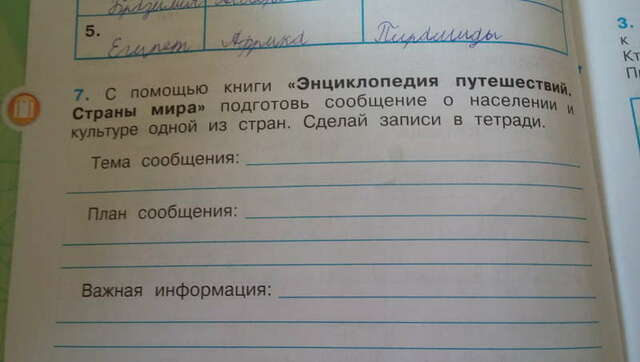 Бразилия
5.
Египет Африка Пирамиды
7. С помощью книги «Энциклопедия путешествий.
Страны мира» подготовь сообщение о населении и
культуре одной из стран. Сделай записи в тетради.
Тема сообщения:
План сообщения:
Важная информация:
3.
к
Кт